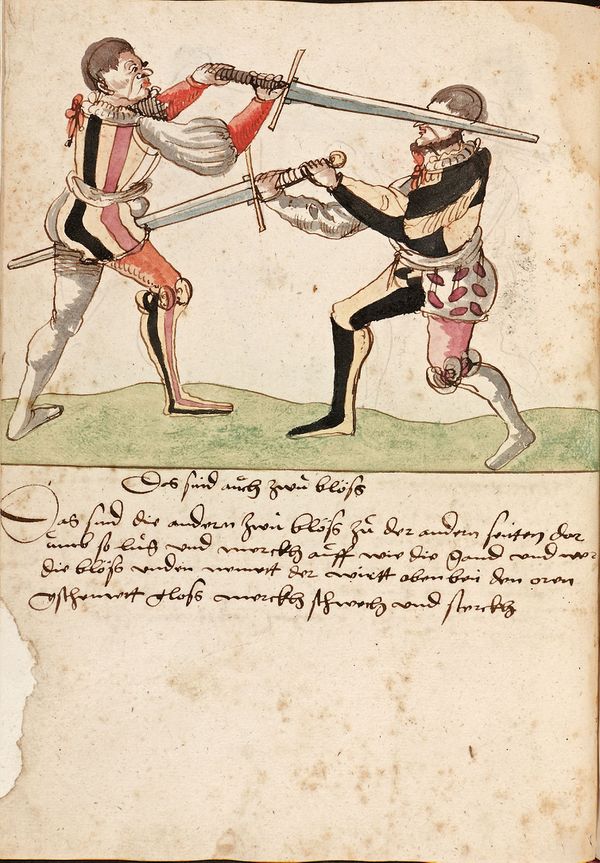 Das sind auch zwu blöss
Das sind die andern zwu blöss zu der andern seiten dar
umb so lug und merckh auff wie die
die blöss unden nempt der wirtt oben bei den oren
gloss merckh schwech und sterckh